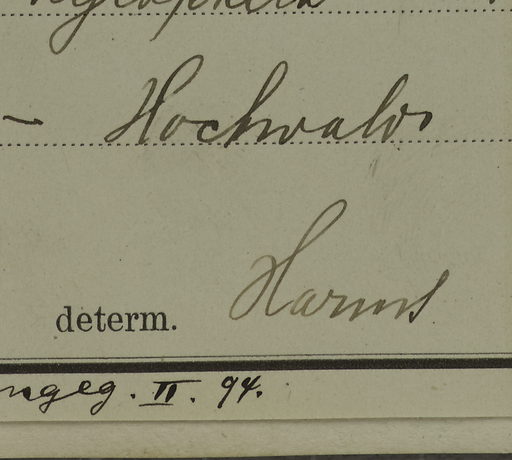 – Hochwald
determ. Harms
ngeg. II. 94.